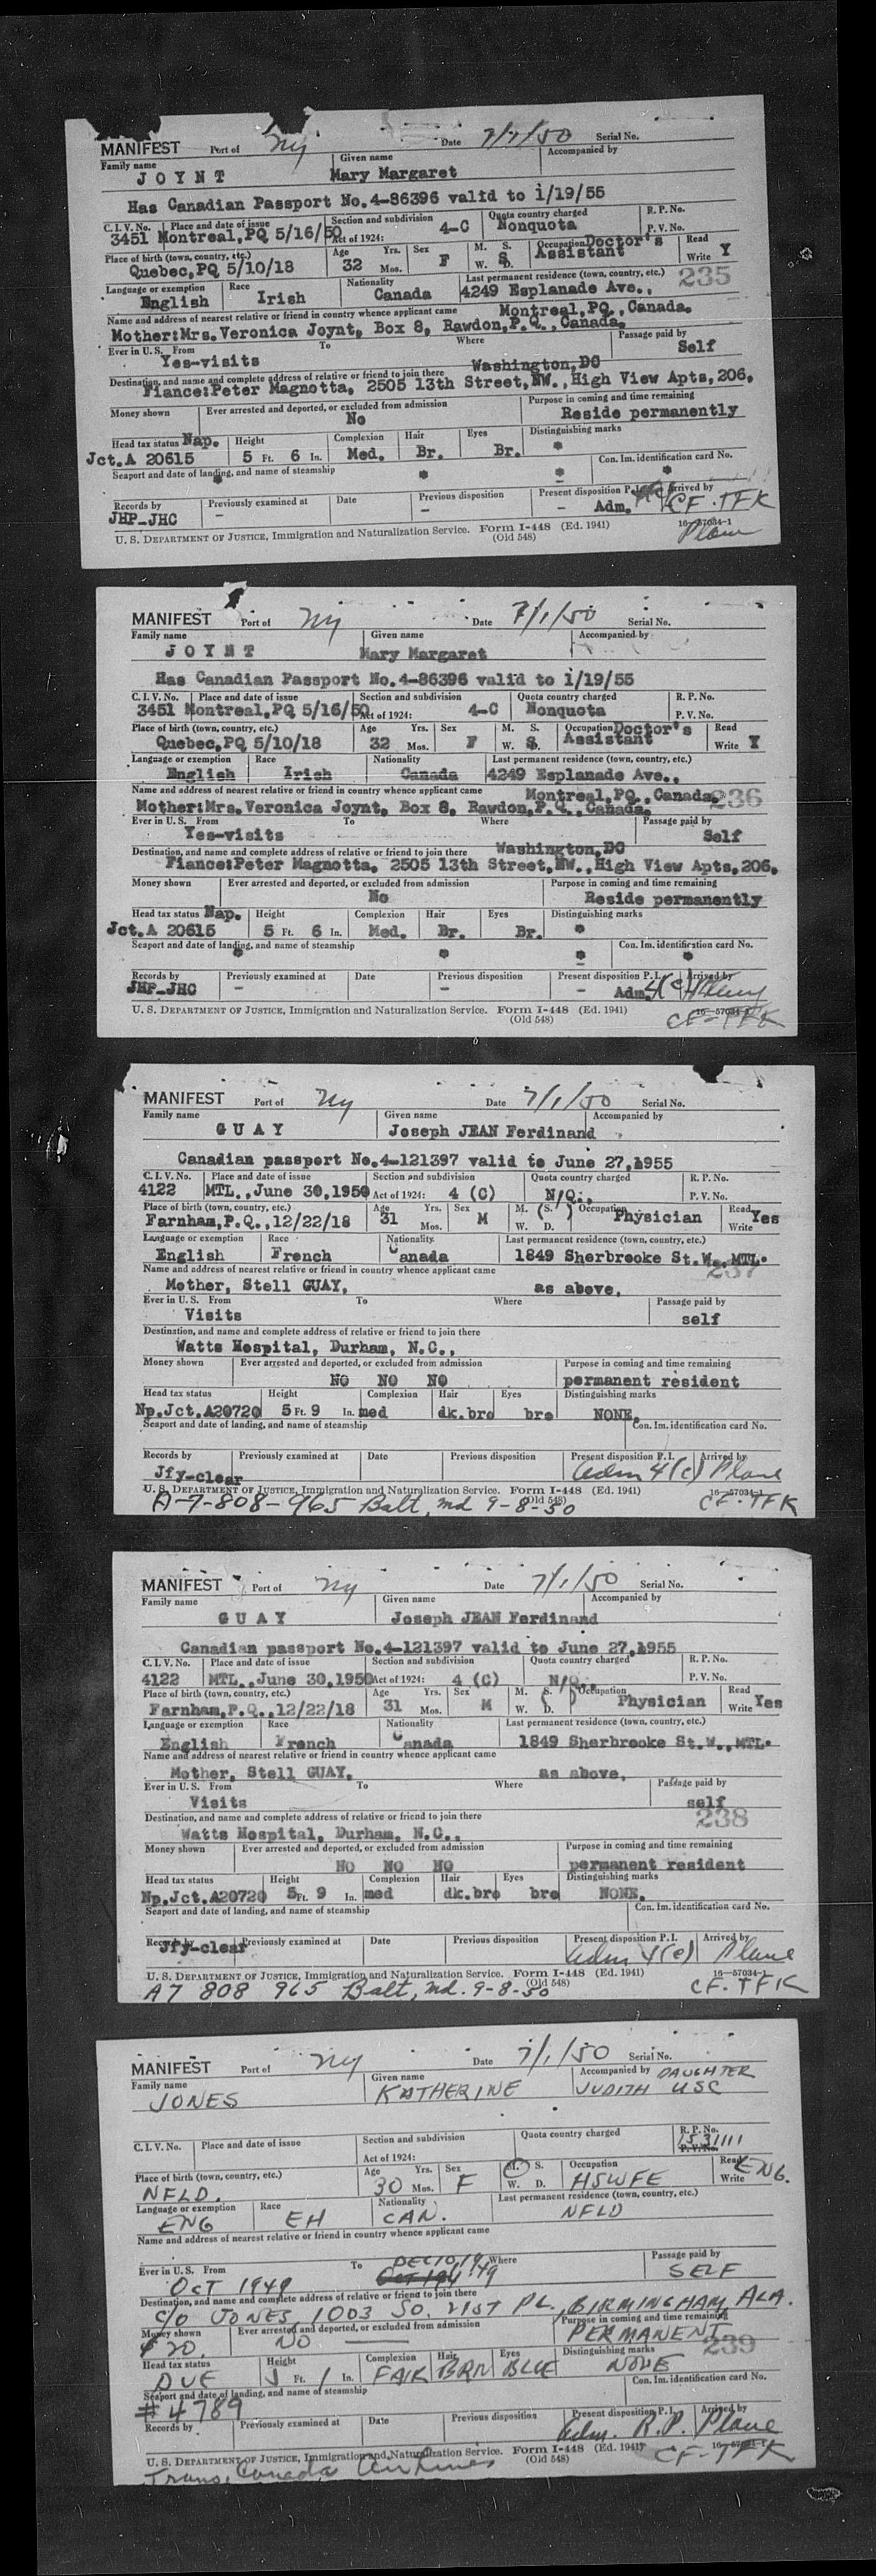 MANIFEST Port of NY Date 7/1/50 Serial No.
Family name Given name Accompanied by
JOYNT Mary Margaret
Has Canadian Passport No.4-86396 valid to 1/19/55
C. I. V. No. Place and date of issue Section and subdivision Quota country charged R. P. No.
3451 Montreal,PQ 5/16/50 Act of 1924: 4-C Nonquota P. V. No.
Place of birth (town, country, etc.) Age Yrs. Sex M. S. Occupation Doctor's Read
Quebec,PQ 5/10/18 32 Mos. F W. D. S Assistant Write Y
Language or exemption Race Nationality Last permanent residence (town, country, etc.) 235
English Irish Canada 4249 Esplanade Ave.,
Name and address of nearest relative or friend in country whence applicant came Montreal,PQ.,Canada.
Mother:Mrs.Veronica Joynt, Box 8, Rawdon,P.Q.,Canada.
Ever in U. S. From To Where Passage paid by
Yes-visits Self
Destination, and name and complete address of relative or friend to join there Washington,DC
Fiance:Peter Magnotta, 2505 13th Street,NW.,High View Apts,206.
Money shown Ever arrested and deported, or excluded from admission Purpose in coming and time remaining
No Reside permanently
Head tax status Nap. Height Complexion Hair Eyes Distinguishing marks
Jct.A 20615 5 Ft. 6 In. Med. Br. Br. *
Seaport and date of landing, and name of steamship Con. Im. identification card No.
* * * *
Records by Previously examined at Date Previous disposition Present disposition P.I. Arrived by
JHP-JHC - - - Adm. CF-TFK
U. S. DEPARTMENT OF JUSTICE, Immigration and Naturalization Service. Form I-448 (Ed. 1941) 16—57034-1
(Old 548) Plane
MANIFEST Port of NY Date 7/1/50 Serial No.
Family name Given name Accompanied by
JOYNT Mary Margaret
Has Canadian Passport No.4-86396 valid to 1/19/55
C. I. V. No. Place and date of issue Section and subdivision Quota country charged R. P. No.
3451 Montreal,PQ 5/16/50 Act of 1924: 4-C Nonquota P. V. No.
Place of birth (town, country, etc.) Age Yrs. Sex M. S. Occupation Doctor's Read
Quebec,PQ 5/10/18 32 Mos. F W. D. S Assistant Write Y
Language or exemption Race Nationality Last permanent residence (town, country, etc.)
English Irish Canada 4249 Esplanade Ave.,
Name and address of nearest relative or friend in country whence applicant came Montreal,PQ.,Canada. 236
Mother:Mrs.Veronica Joynt, Box 8, Rawdon,P.Q.,Canada.
Ever in U. S. From To Where Passage paid by
Yes-visits Self
Destination, and name and complete address of relative or friend to join there Washington,DC
Fiance:Peter Magnotta, 2505 13th Street,NW.,High View Apts,206.
Money shown Ever arrested and deported, or excluded from admission Purpose in coming and time remaining
No Reside permanently
Head tax status Nap. Height Complexion Hair Eyes Distinguishing marks
Jct.A 20615 5 Ft. 6 In. Med. Br. Br. *
Seaport and date of landing, and name of steamship Con. Im. identification card No.
* * * *
Records by Previously examined at Date Previous disposition Present disposition P.I. Arrived by
JHP-JHC - - - Adm. 4(c)
U. S. DEPARTMENT OF JUSTICE, Immigration and Naturalization Service. Form I-448 (Ed. 1941) 16—57034-1
(Old 548) CF-TFK
MANIFEST Port of NY Date 7/1/50 Serial No.
Family name Given name Accompanied by
GUAY Joseph JEAN Ferdinand
Canadian passport No.4-121397 valid to June 27,1955
C. I. V. No. Place and date of issue Section and subdivision Quota country charged R. P. No.
4122 MTL.,June 30,1950 Act of 1924: 4 (C) N/Q. P. V. No.
Place of birth (town, country, etc.) Age Yrs. Sex M. (S.) Occupation Read
Farnham,P.Q.,12/22/18 31 Mos. M W. D. Physician Write Yes
Language or exemption Race Nationality Last permanent residence (town, country, etc.)
English French Canada 1849 Sherbrooke St.W., MTL.
Name and address of nearest relative or friend in country whence applicant came 237
Mother, Stell GUAY, as above,
Ever in U. S. From To Where Passage paid by
Visits self
Destination, and name and complete address of relative or friend to join there
Watts Hospital, Durham, N.C.,
Money shown Ever arrested and deported, or excluded from admission Purpose in coming and time remaining
NO NO NO permanent resident
Head tax status Height Complexion Hair Eyes Distinguishing marks
Np.Jct.A20720 5 Ft. 9 In. med dk.bro bro NONE.
Seaport and date of landing, and name of steamship Con. Im. identification card No.
Records by Previously examined at Date Previous disposition Present disposition P.I. Arrived by
Jfy-clear Adm 4(c) Plane
U. S. DEPARTMENT OF JUSTICE, Immigration and Naturalization Service. Form I-448 (Ed. 1941) 16—57034-1
A-7-808-965 Balt, md 9-8-50 (Old 548) CF-TFK
MANIFEST Port of NY Date 7/1/50 Serial No.
Family name Given name Accompanied by
GUAY Joseph JEAN Ferdinand
Canadian passport No.4-121397 valid to June 27,1955
C. I. V. No. Place and date of issue Section and subdivision Quota country charged R. P. No.
4122 MTL.,June 30,1950 Act of 1924: 4 (C) N/Q. P. V. No.
Place of birth (town, country, etc.) Age Yrs. Sex M. S. Occupation Read
Farnham,P.Q.,12/22/18 31 Mos. M W. D. Physician Write Yes
Language or exemption Race Nationality Last permanent residence (town, country, etc.)
English French Canada 1849 Sherbrooke St.W., MTL.
Name and address of nearest relative or friend in country whence applicant came
Mother, Stell GUAY, as above,
Ever in U. S. From To Where Passage paid by
Visits self
Destination, and name and complete address of relative or friend to join there 238
Watts Hospital, Durham, N.C.,
Money shown Ever arrested and deported, or excluded from admission Purpose in coming and time remaining
NO NO NO permanent resident
Head tax status Height Complexion Hair Eyes Distinguishing marks
Np.Jct.A20720 5 Ft. 9 In. med dk.bro bro NONE.
Seaport and date of landing, and name of steamship Con. Im. identification card No.
Records by Previously examined at Date Previous disposition Present disposition P.I. Arrived by
Jfy-clear Adm 4(c) Plane
U. S. DEPARTMENT OF JUSTICE, Immigration and Naturalization Service. Form I-448 (Ed. 1941) 16—57034-1
A7 808 965 Balt, md. 9-8-50 (Old 548) CF-TFK
MANIFEST Port of NY Date 7/1/50 Serial No.
Family name Given name Accompanied by DAUGHTER
JONES KATHERINE JUDITH USC
C. I. V. No. Place and date of issue Section and subdivision Quota country charged R. P. No.
Act of 1924: 1531111 P. V. No.
Place of birth (town, country, etc.) Age Yrs. Sex M. S. Occupation Read
NFLD. 30 Mos. F W. D. HSWFE Write ENG.
Language or exemption Race Nationality Last permanent residence (town, country, etc.)
ENG EH CAN. NFLD
Name and address of nearest relative or friend in country whence applicant came
Ever in U. S. From To DEC 10, 19 Where Passage paid by
OCT 1949 '49 SELF
Destination, and name and complete address of relative or friend to join there
C/O JONES, 1003 SO. 21ST PL., BIRMINGHAM, ALA.
Money shown Ever arrested and deported, or excluded from admission Purpose in coming and time remaining
$20. NO PERMANENT 239
Head tax status Height Complexion Hair Eyes Distinguishing marks
DUE 5 Ft. 1 In. FAIR BRN BLUE NONE
Seaport and date of landing, and name of steamship Con. Im. identification card No.
#4789
Records by Previously examined at Date Previous disposition Present disposition P.I. Arrived by
Adm. R.P. Plane
U. S. DEPARTMENT OF JUSTICE, Immigration and Naturalization Service. Form I-448 (Ed. 1941) 16—57034-1
Trans. Canada Airlines (Old 548) CF-TFK